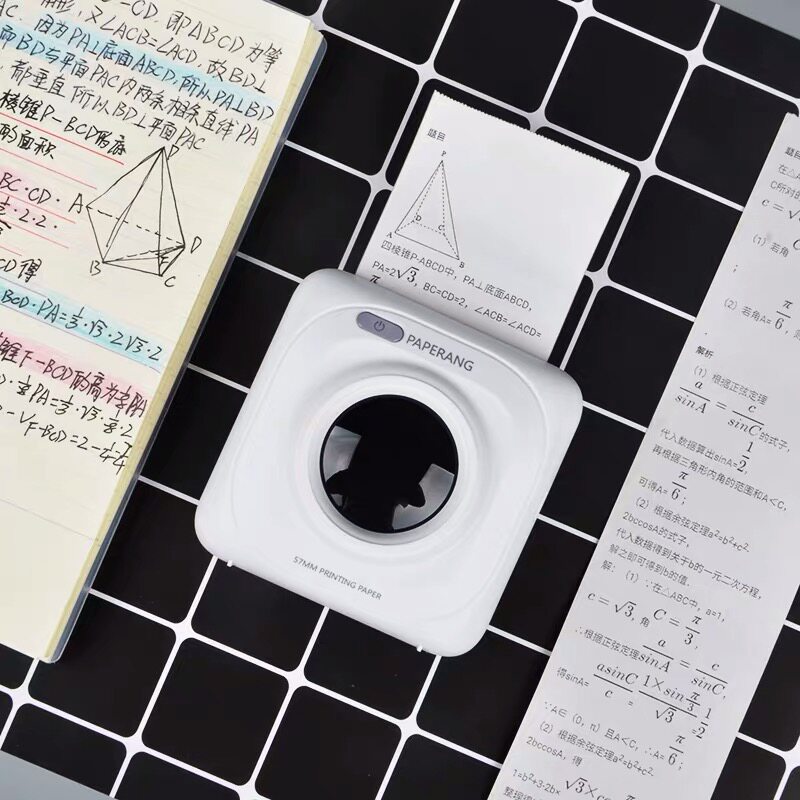 -CD, 即ABCD为等
形, 又∠ACB=∠ACD, 故BD⊥
AC. 因为PA⊥底面ABCD, 所以PA⊥BD
而BD与平面PAC内两条相交直线PA
都垂直 所以BD⊥平面PAC
棱锥P-BCD的底
的面积
BC·CD·
·2·2·
P
A
B
C
D
CD得
BCD·PA=⅓·√3·2√3·2
锥F-BCD的高为⅛PA
PA=⅓·√3·
V_F-BCD=2-
题目
P
A
D
C
B
四棱锥P-ABCD中, PA⊥底面ABCD,
PA=2√3, BC=CD=2, ∠ACB=∠ACD=
π
PAPERANG
57MM PRINTING PAPER
题目
在△A
C所对的
c=√
(1) 若角
;
(2) 若角A=π/6, 则
解析
(1) 根据正弦定理
a/sinA=c/sinC的式子,
代入数据算出sinA=1/2,
再根据三角形内角的范围和A<C,
可得A=π/6;
(2) 根据余弦定理a²=b²+c²-
2bccosA的式子,
代入数据得到关于b的一元二次方程,
解之即可得到b的值.
解: (1) ∵在△ABC中, a=1,
c=√3, 角C=π/3,
∴根据正弦定理a/sinA=c/sinC,
得sinA=asinC/c=1×sinπ/3/√3=1/2
∵A∈(0, π) 且A<C, ∴A=π/6;
(2) 根据余弦定理a²=b²+c²-
2bccosA, 得
1=b²+3-2b×√3×co
整理得